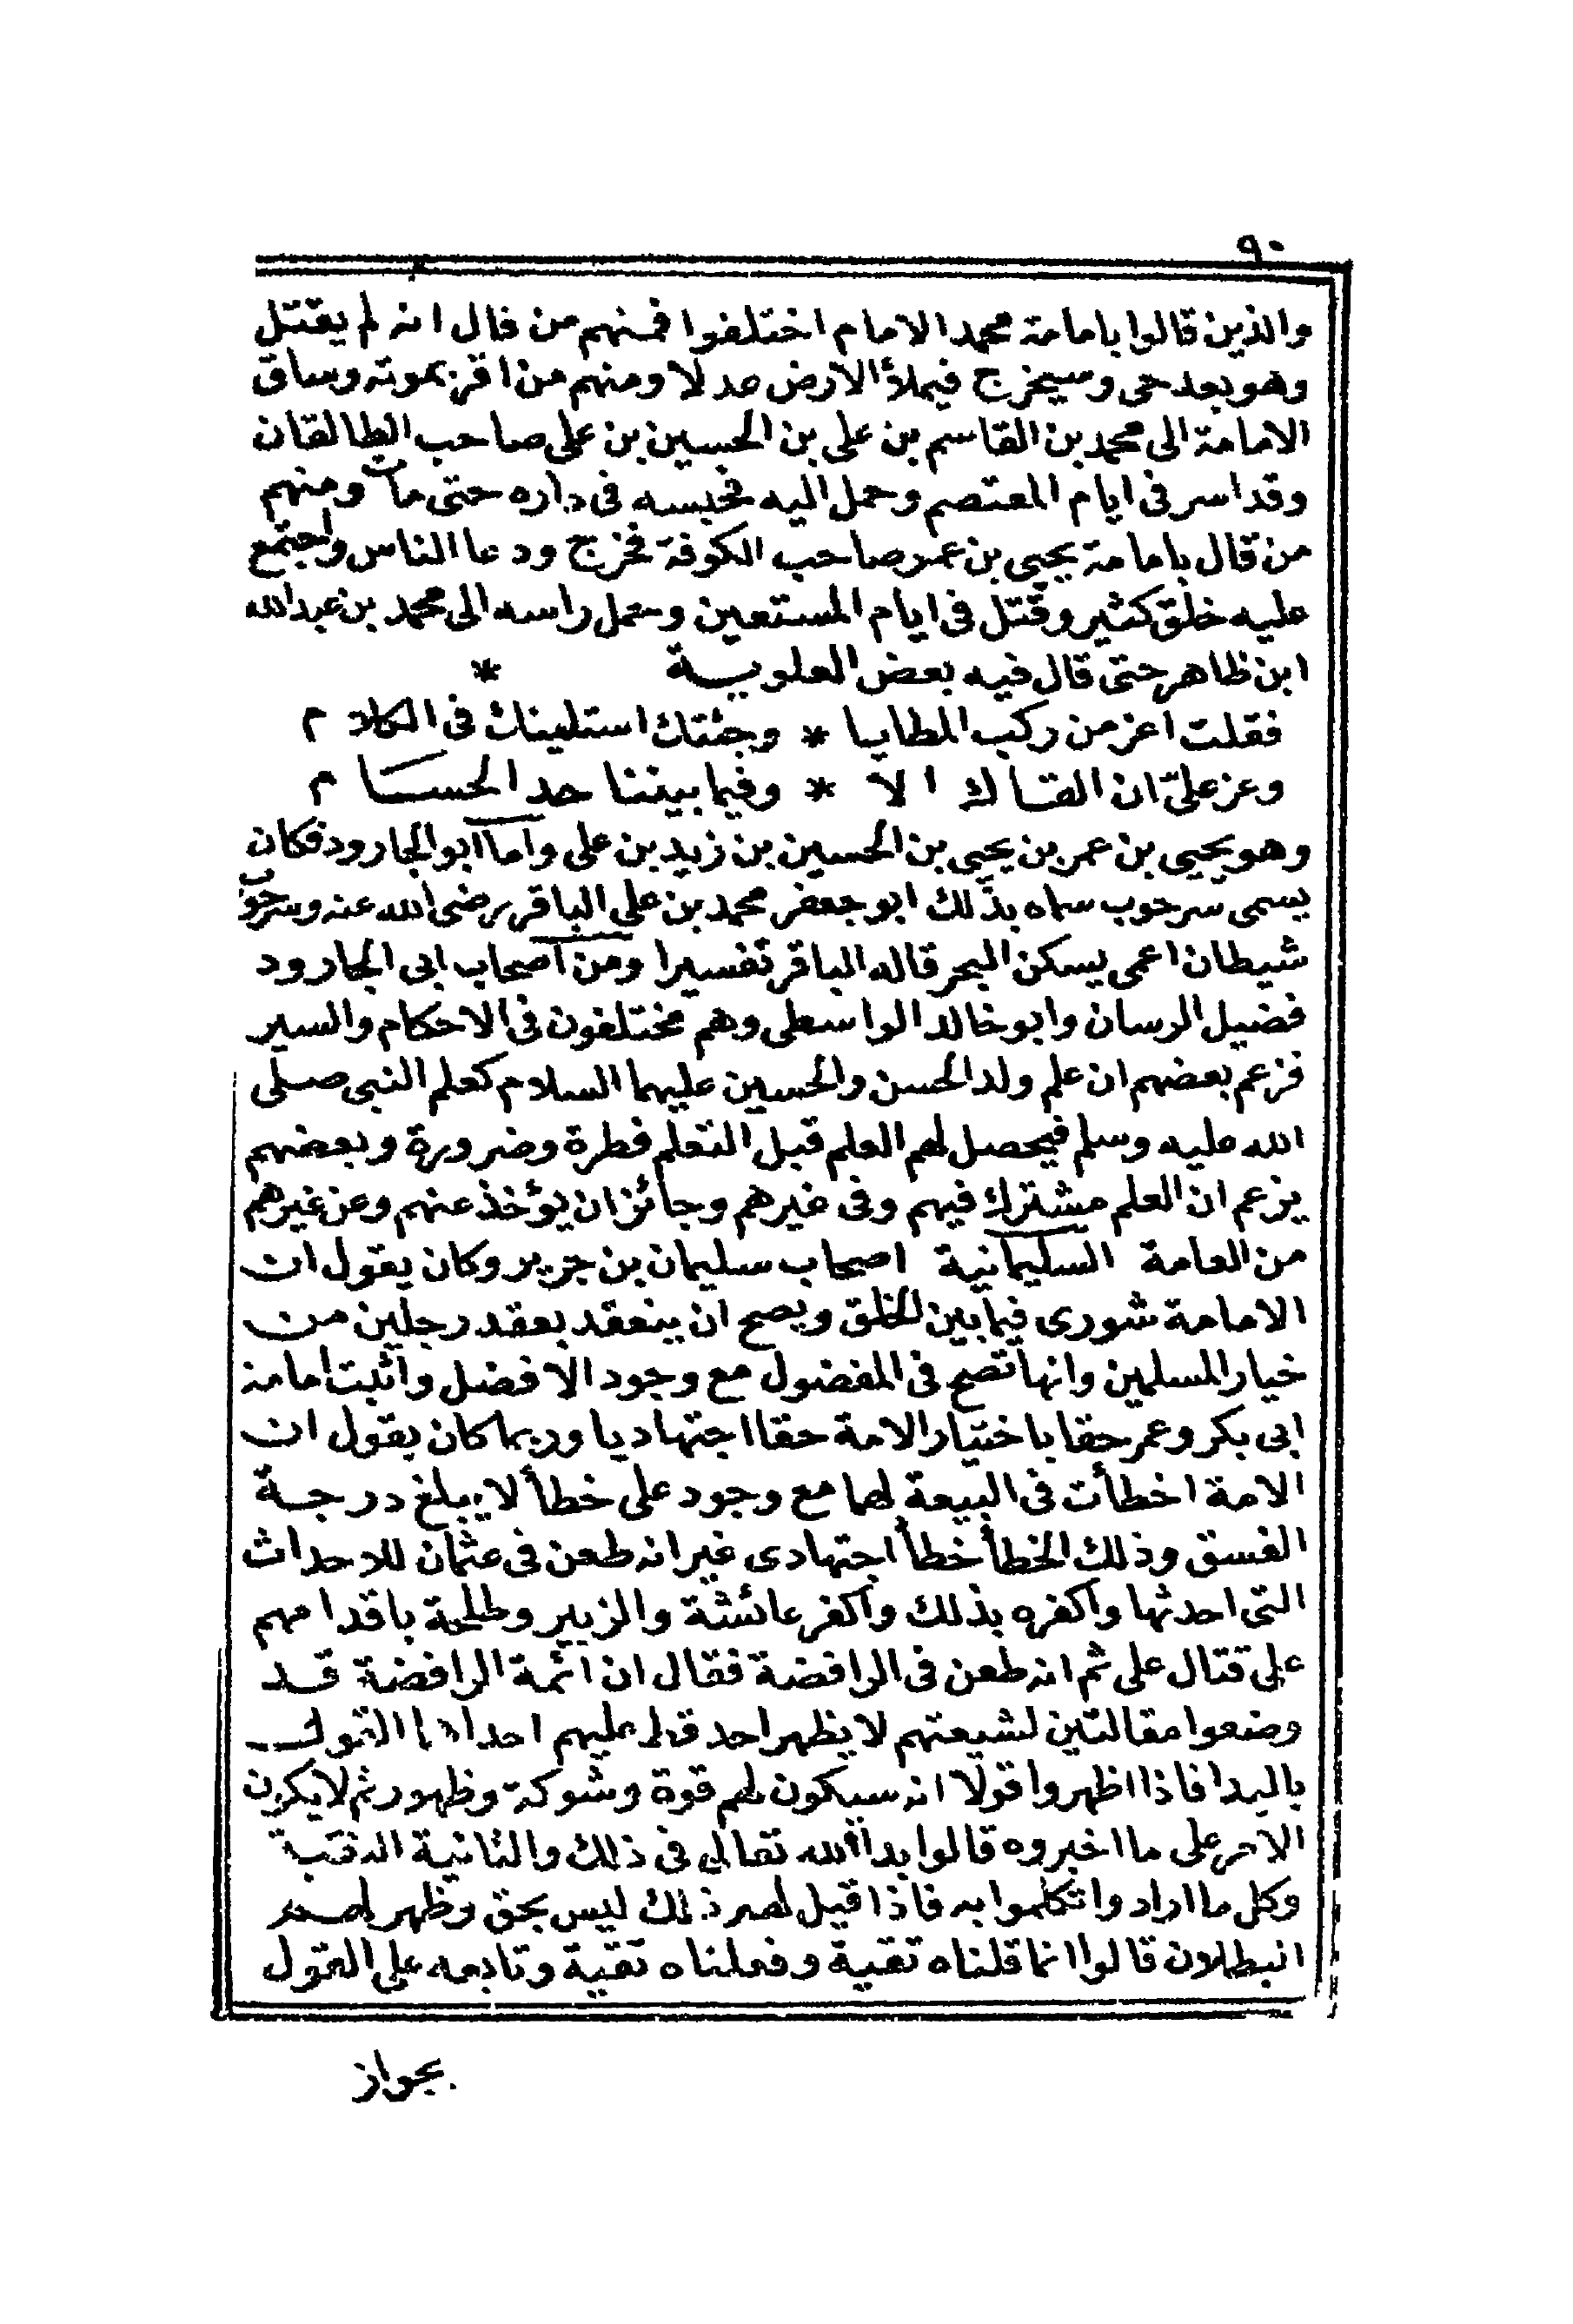 ٩٠
والذين قالوا بامامة محمد الامام اختلفوا فمنهم من قال انه لم يقتل
وهو بعد حى وسيخرج فيملأ الارض عدلا ومنهم من اقر بموته وساق
الامامة الى محمد بن القاسم بن على بن الحسين بن على صاحب الطالقان
وقد اسر فى ايام المعتصم وحمل اليه فحبسه فى داره حتى مات ومنهم
من قال بامامة يحيى بن عمر صاحب الكوفة فخرج ودعا الناس واجتمع
عليه خلق كثير وقتل فى ايام المستعين وحمل راسه الى محمد بن عبدالله
ابن ظاهر حتى قال فيه بعض العلوية *
فقلت اعز من ركب المطايا * وجئتك استلينك فى الكلام
وعز علىّ ان القاك الا * وفيما بيننا حد الحسام
وهو يحيى بن عمر بن يحيى بن الحسين بن زيد بن على واما ابو الجارود فكان
يسمى سرحوب سماه بذلك ابو جعفر محمد بن على الباقر رضى الله عنه وسرحوب
شيطان اعمى يسكن البحر قاله الباقر تفسيرا ومن اصحاب ابى الجارود
فضيل الرسان وابو خالد الواسطى وهم مختلفون فى الاحكام والسير
فزعم بعضهم ان علم ولد الحسن والحسين عليهما السلام كعلم النبى صلى
الله عليه وسلم فيحصل لهم العلم قبل التعلم فطرة وضرورة وبعضهم
يزعم ان العلم مشترك فيهم وفى غيرهم وجائز ان يؤخذ عنهم وعن غيرهم
من العامة السليمانية اصحاب سليمان بن جرير وكان يقول ان
الامامة شورى فيما بين الخلق ويصح ان ينعقد بعقد رجلين من
خيار المسلمين وانها تصح فى المفضول مع وجود الافضل واثبت امامة
ابى بكر وعمر حقا باختيار الامة حقا اجتهاديا وربما كان يقول ان
الامة اخطأت فى البيعة لهما مع وجود على خطأ لا يبلغ درجة
الفسق وذلك الخطأ خطأ اجتهادى غير انه طعن فى عثمان للاحداث
التى احدثها واكفره بذلك واكفر عائشة والزبير وطلحة باقدامهم
على قتال على ثم انه طعن فى الرافضة فقال ان ائمة الرافضة قد
وضعوا مقالتين لشيعتهم لا يظهر احد قط عليهم احداهما القول
بالبدا فاذا اظهروا قولا انه سيكون لهم قوة وشوكة وظهور ثم لا يكون
الامر على ما اخبروه قالوا بدا لله تعالى فى ذلك والثانية التقية
وكل ما ارادوا تكلموا به فاذا قيل لهم ذلك ليس بحق وظهر لهم
البطلان قالوا انما قلناه تقية وفعلناه تقية وتابعه على القول
بجواز